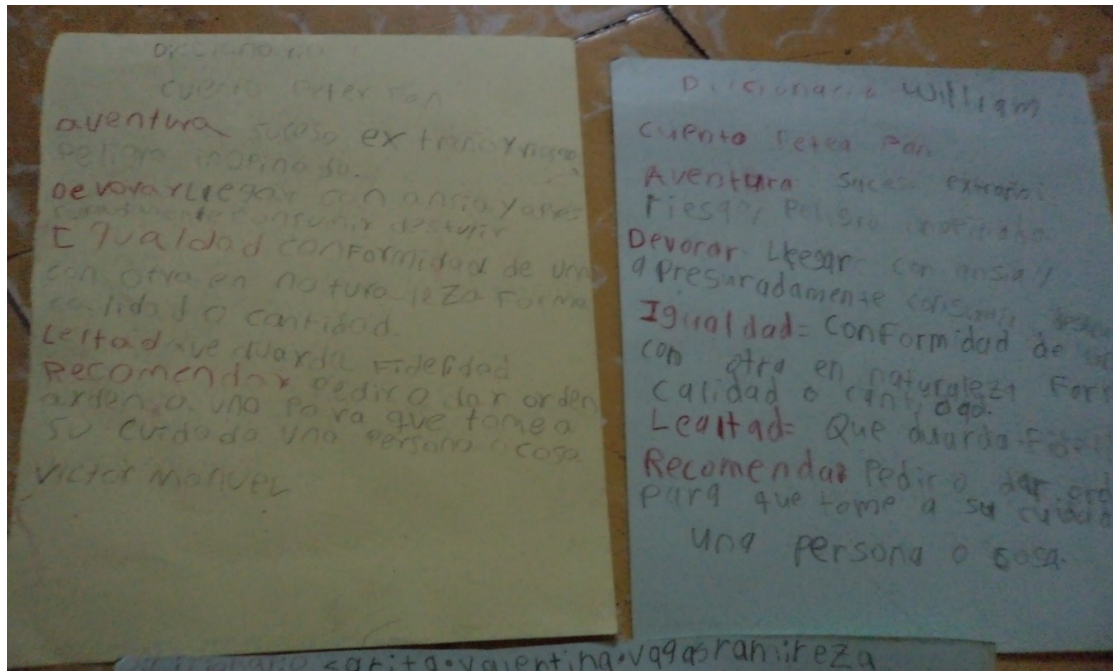 Diccionario
cuento Peter Pan
aventura suceso extraño y riesgo
peligro inopinado.
Devorar Llegar con ansia y apres
suradamente consumir destuir
Igualdad conformidad de una
con otra en naturaleza Forma
calidad o cantidad.
Leltad que duarda Fidelidad
Recomendar Pedir o dar orden
arden a uno para que tome a
su cuidado una persona o cosa
Victor Manuel
Diccionario William
cuento Peter Pan
Aventura suceso extraño:
riesgo, Peligro inopinado.
Devorar Llegar con ansia y
apresuradamente consumir
Igualdad= Conformidad de
con otra en naturaleza Form
calidad o cantidad.
Lealtad= Que duarda
Recomendar Pedir o dar ord
para que tome a su cuidad
una persona o cosa.
sarita valentina vagas ramireza